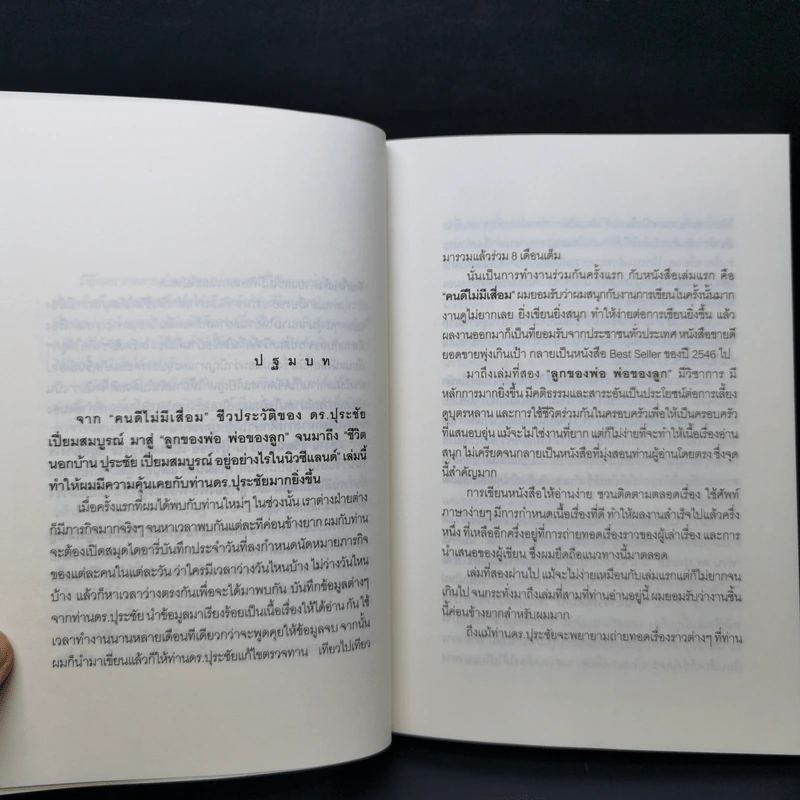 ปฐมบท
จาก “คนดีไม่มีเสื่อม” ชีวประวัติของ ดร.ปุระชัย
เปี่ยมสมบูรณ์ มาสู่ “ลูกของพ่อ พ่อของลูก” จนมาถึง “ชีวิต
นอกบ้าน ปุระชัย เปี่ยมสมบูรณ์ อยู่อย่างไรในนิวซีแลนด์” เล่มนี้
ทำให้ผมมีความคุ้นเคยกับท่านดร.ปุระชัยมากยิ่งขึ้น
เมื่อครั้งแรกที่ผมได้พบกับท่านใหม่ๆ ในช่วงนั้น เราต่างฝ่ายต่าง
ก็มีภารกิจมากจริงๆ จนหาเวลาพบกันแต่ละทีค่อนข้างยาก ผมกับท่าน
จะต้องเปิดสมุดไดอารี่บันทึกประจำวันที่ลงกำหนดนัดหมายภารกิจ
ของแต่ละคนในแต่ละวัน ว่าใครมีเวลาว่างวันไหนบ้าง ไม่ว่างวันไหน
บ้าง แล้วก็หาเวลาว่างตรงกันเพื่อจะได้มาพบกัน บันทึกข้อมูลต่างๆ
จากท่านดร.ปุระชัย นำข้อมูลมาเรียงร้อยเป็นเนื้อเรื่องให้ได้อ่าน กัน ใช้
เวลาทำงานนานหลายเดือนทีเดียวกว่าจะพูดคุยให้ข้อมูลจบ จากนั้น
ผมก็นำมาเขียนแล้วก็ให้ท่านดร.ปุระชัยแก้ไขตรวจทาน เทียวไปเทียว
มารวมแล้วร่วม 8 เดือนเต็ม
นั่นเป็นการทำงานร่วมกันครั้งแรก กับหนังสือเล่มแรก คือ
“คนดีไม่มีเสื่อม” ผมยอมรับว่าผมสนุกกับงานการเขียนในครั้งนั้นมาก
งานดูไม่ยากเลย ยิ่งเขียนยิ่งสนุก ทำให้ง่ายต่อการเขียนยิ่งขึ้น แล้ว
ผลงานออกมาก็เป็นที่ยอมรับจากประชาชนทั่วประเทศ หนังสือขายดี
ยอดขายพุ่งเกินเป้า กลายเป็นหนังสือ Best Seller ของปี 2546 ไป
มาถึงเล่มที่สอง “ลูกของพ่อ พ่อของลูก” มีวิชาการ มี
หลักการมากยิ่งขึ้น มีคติธรรมและสาระอันเป็นประโยชน์ต่อการเลี้ยง
ดูบุตรหลาน และการใช้ชีวิตร่วมกันในครอบครัวเพื่อให้เป็นครอบครัว
ที่แสนอบอุ่น แม้จะไม่ใช่งานที่ยาก แต่ก็ไม่ง่ายที่จะทำให้เนื้อเรื่องอ่าน
สนุก ไม่เครียดจนกลายเป็นหนังสือที่มุ่งสอนท่านผู้อ่านโดยตรง ซึ่งจุด
นี้สำคัญมาก
การเขียนหนังสือให้อ่านง่าย ชวนติดตามตลอดเรื่อง ใช้ศัพท์
ภาษาง่ายๆ มีการกำหนดเนื้อเรื่องที่ดี ทำให้ผลงานสำเร็จไปแล้วครึ่ง
หนึ่ง ที่เหลืออีกครึ่งอยู่ที่การถ่ายทอดเรื่องราวของผู้เล่าเรื่อง และการ
นำเสนอของผู้เขียน ซึ่งผมยึดถือแนวทางนี้มาตลอด
เล่มที่สองผ่านไป แม้จะไม่ง่ายเหมือนกับเล่มแรกแต่ก็ไม่ยากจน
เกินไป จนกระทั่งมาถึงเล่มที่สามที่ท่านอ่านอยู่นี้ ผมยอมรับว่างานชิ้น
นี้ค่อนข้างยากสำหรับผมมาก
ถึงแม้ท่านดร.ปุระชัยจะพยายามถ่ายทอดเรื่องราวต่างๆ ที่ท่าน